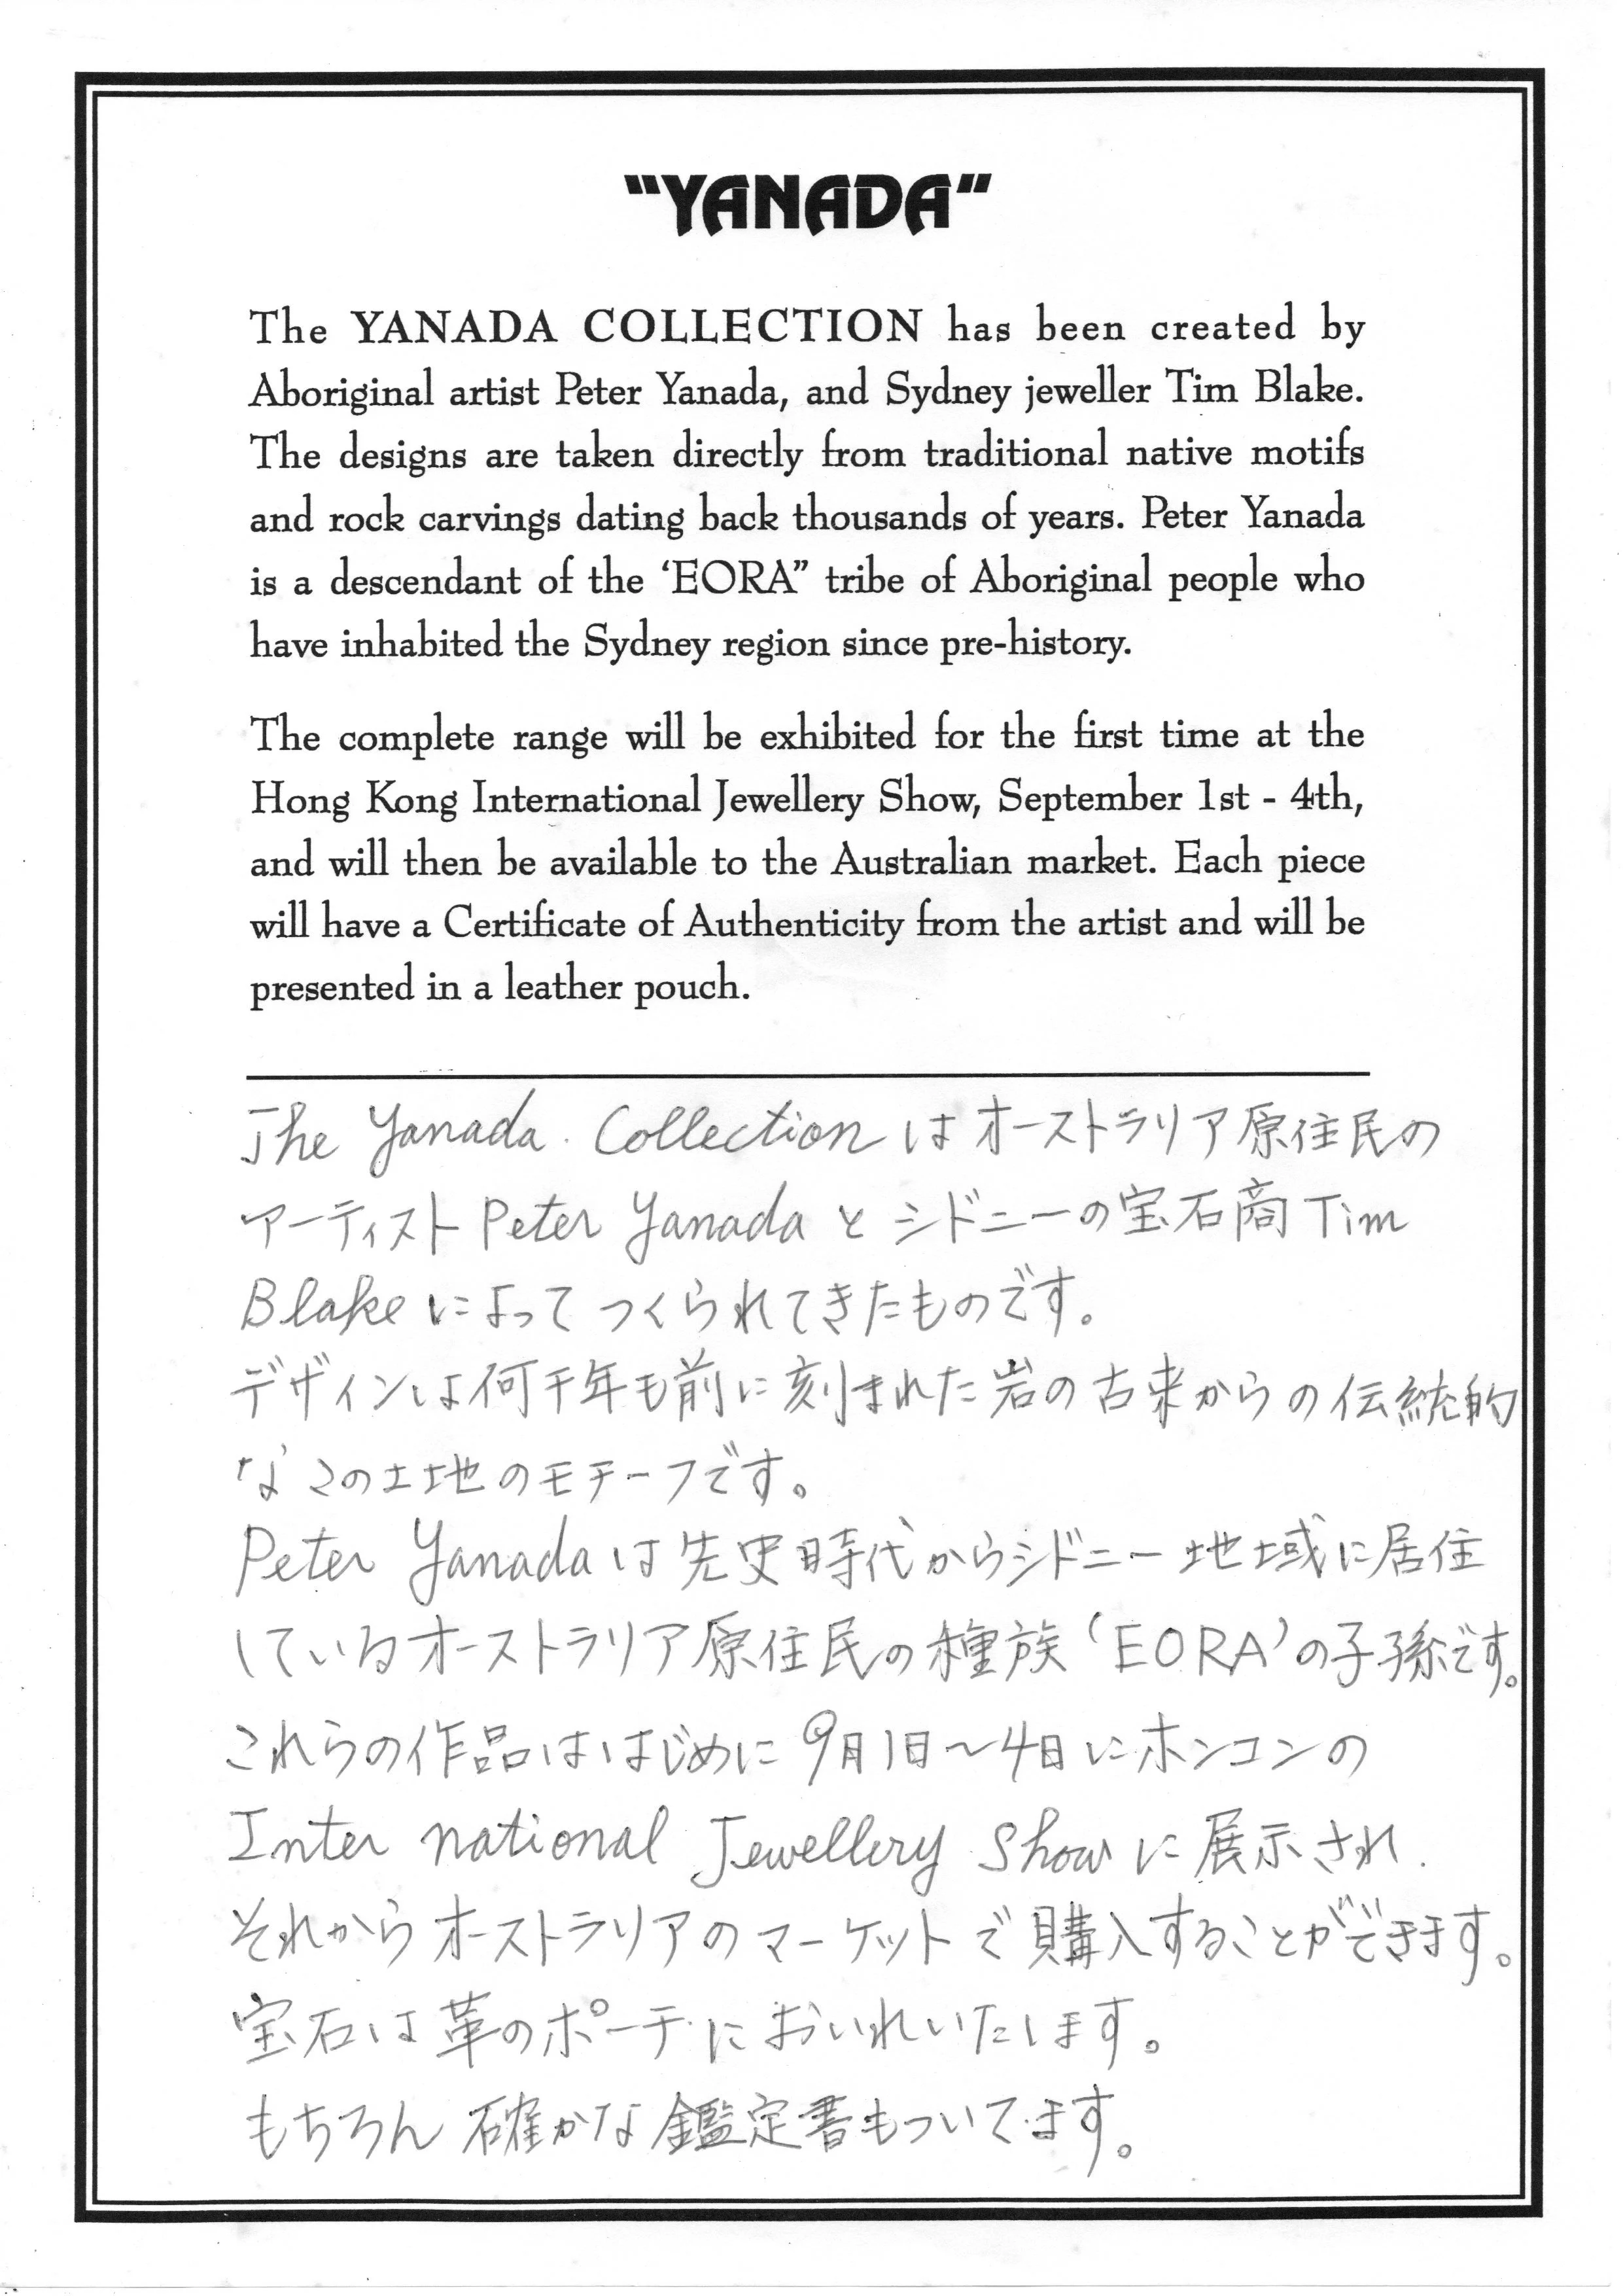 "YANADA"
The YANADA COLLECTION has been created by
Aboriginal artist Peter Yanada, and Sydney jeweller Tim Blake.
The designs are taken directly from traditional native motifs
and rock carvings dating back thousands of years. Peter Yanada
is a descendant of the ‘EORA” tribe of Aboriginal people who
have inhabited the Sydney region since pre-history.
The complete range will be exhibited for the first time at the
Hong Kong International Jewellery Show, September 1st - 4th,
and will then be available to the Australian market. Each piece
will have a Certificate of Authenticity from the artist and will be
presented in a leather pouch.
The Yanada Collection はオーストラリア原住民の
アーティスト Peter Yanada と シドニーの宝石商 Tim
Blake によって つくられてきたものです。
デザインは何千年も前に刻まれた岩の古来からの伝統的
なこの土地のモチーフです。
Peter Yanada は先史時代からシドニー地域に居住
しているオーストラリア原住民の種族‘EORA’の子孫です。
これらの作品ははじめに 9月1日〜4日にホンコンの
International Jewellery Show に展示され
それからオーストラリアのマーケットで購入することができます。
宝石は革のポーチにおいれいたします。
もちろん 確かな鑑定書もついてます。